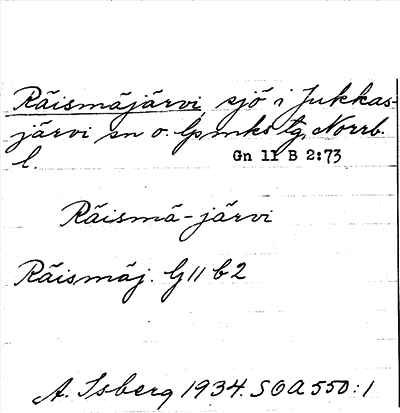 Räismäjärvi, sjö i Jukkas-
järvi sn o. lpmks tg, Norrb.
l.
Gn 11 B 2:73
Räismä-järvi
Räismäj. G 11 b 2
A. Isberg 1934. SOA 550:1